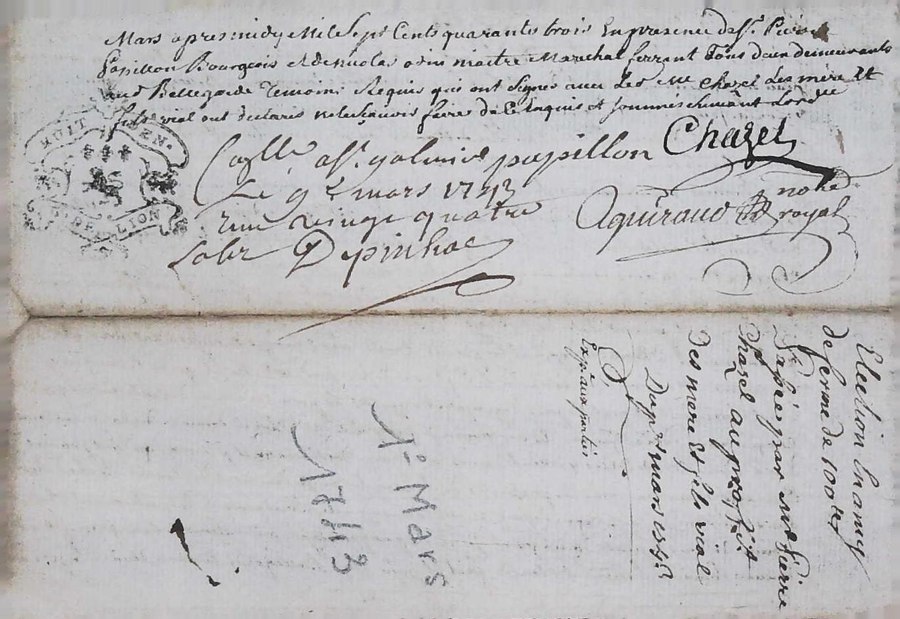 Mars apres midy Mil Sept Cents quarante trois En presence de Sr. Pierre
Papillon Bourgeois et de nicolas maitre Marechal ferrant Tous deux demeurants
aud Bellegarde Temoins Requis qui ont Signés avec Led Me Chazel Lesd mère Et
fils vial ont déclarés ne le sçavoir faire de Ce Enquis et sommés suivant Lord ce
HUIT DEN.
DE LION
Chazel
papillon
Le 9e mars 1743
vingt quatre
Depinhac
Aguiraud note
royal
Election En amy
de ferme de 100lt
par Me Pierre
Chazel au proffit
Des mere Et fils vial
Du pr mars 1743
Exp. aux parties
1º Mars
1743